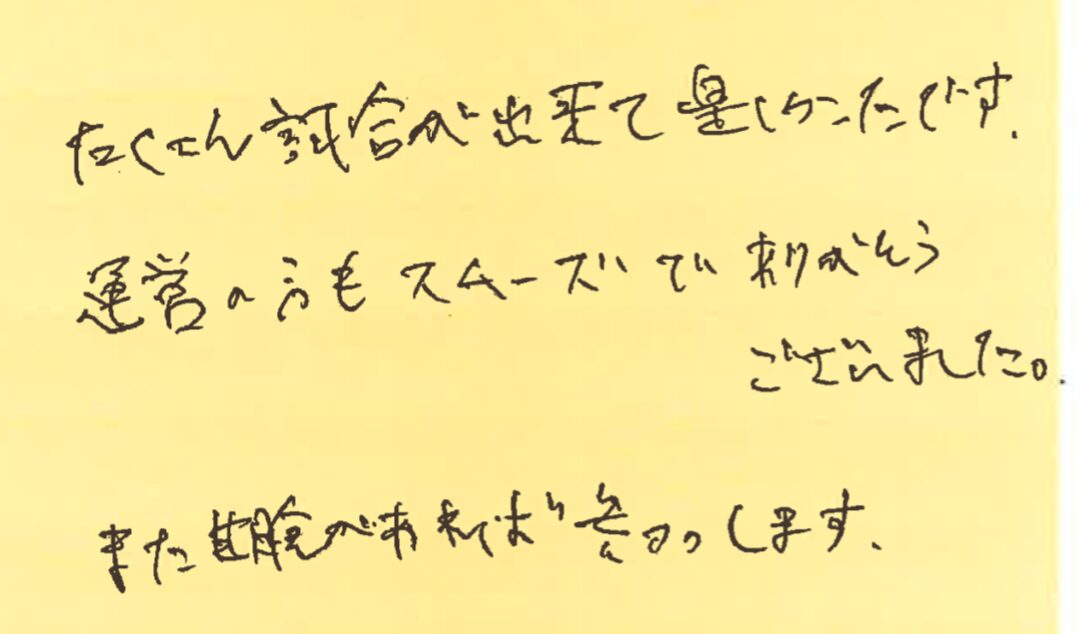 たくさん試合が出来て楽しかったです.
運営の方もスムーズでありがとう
ございました。
また機会があれば参加します.